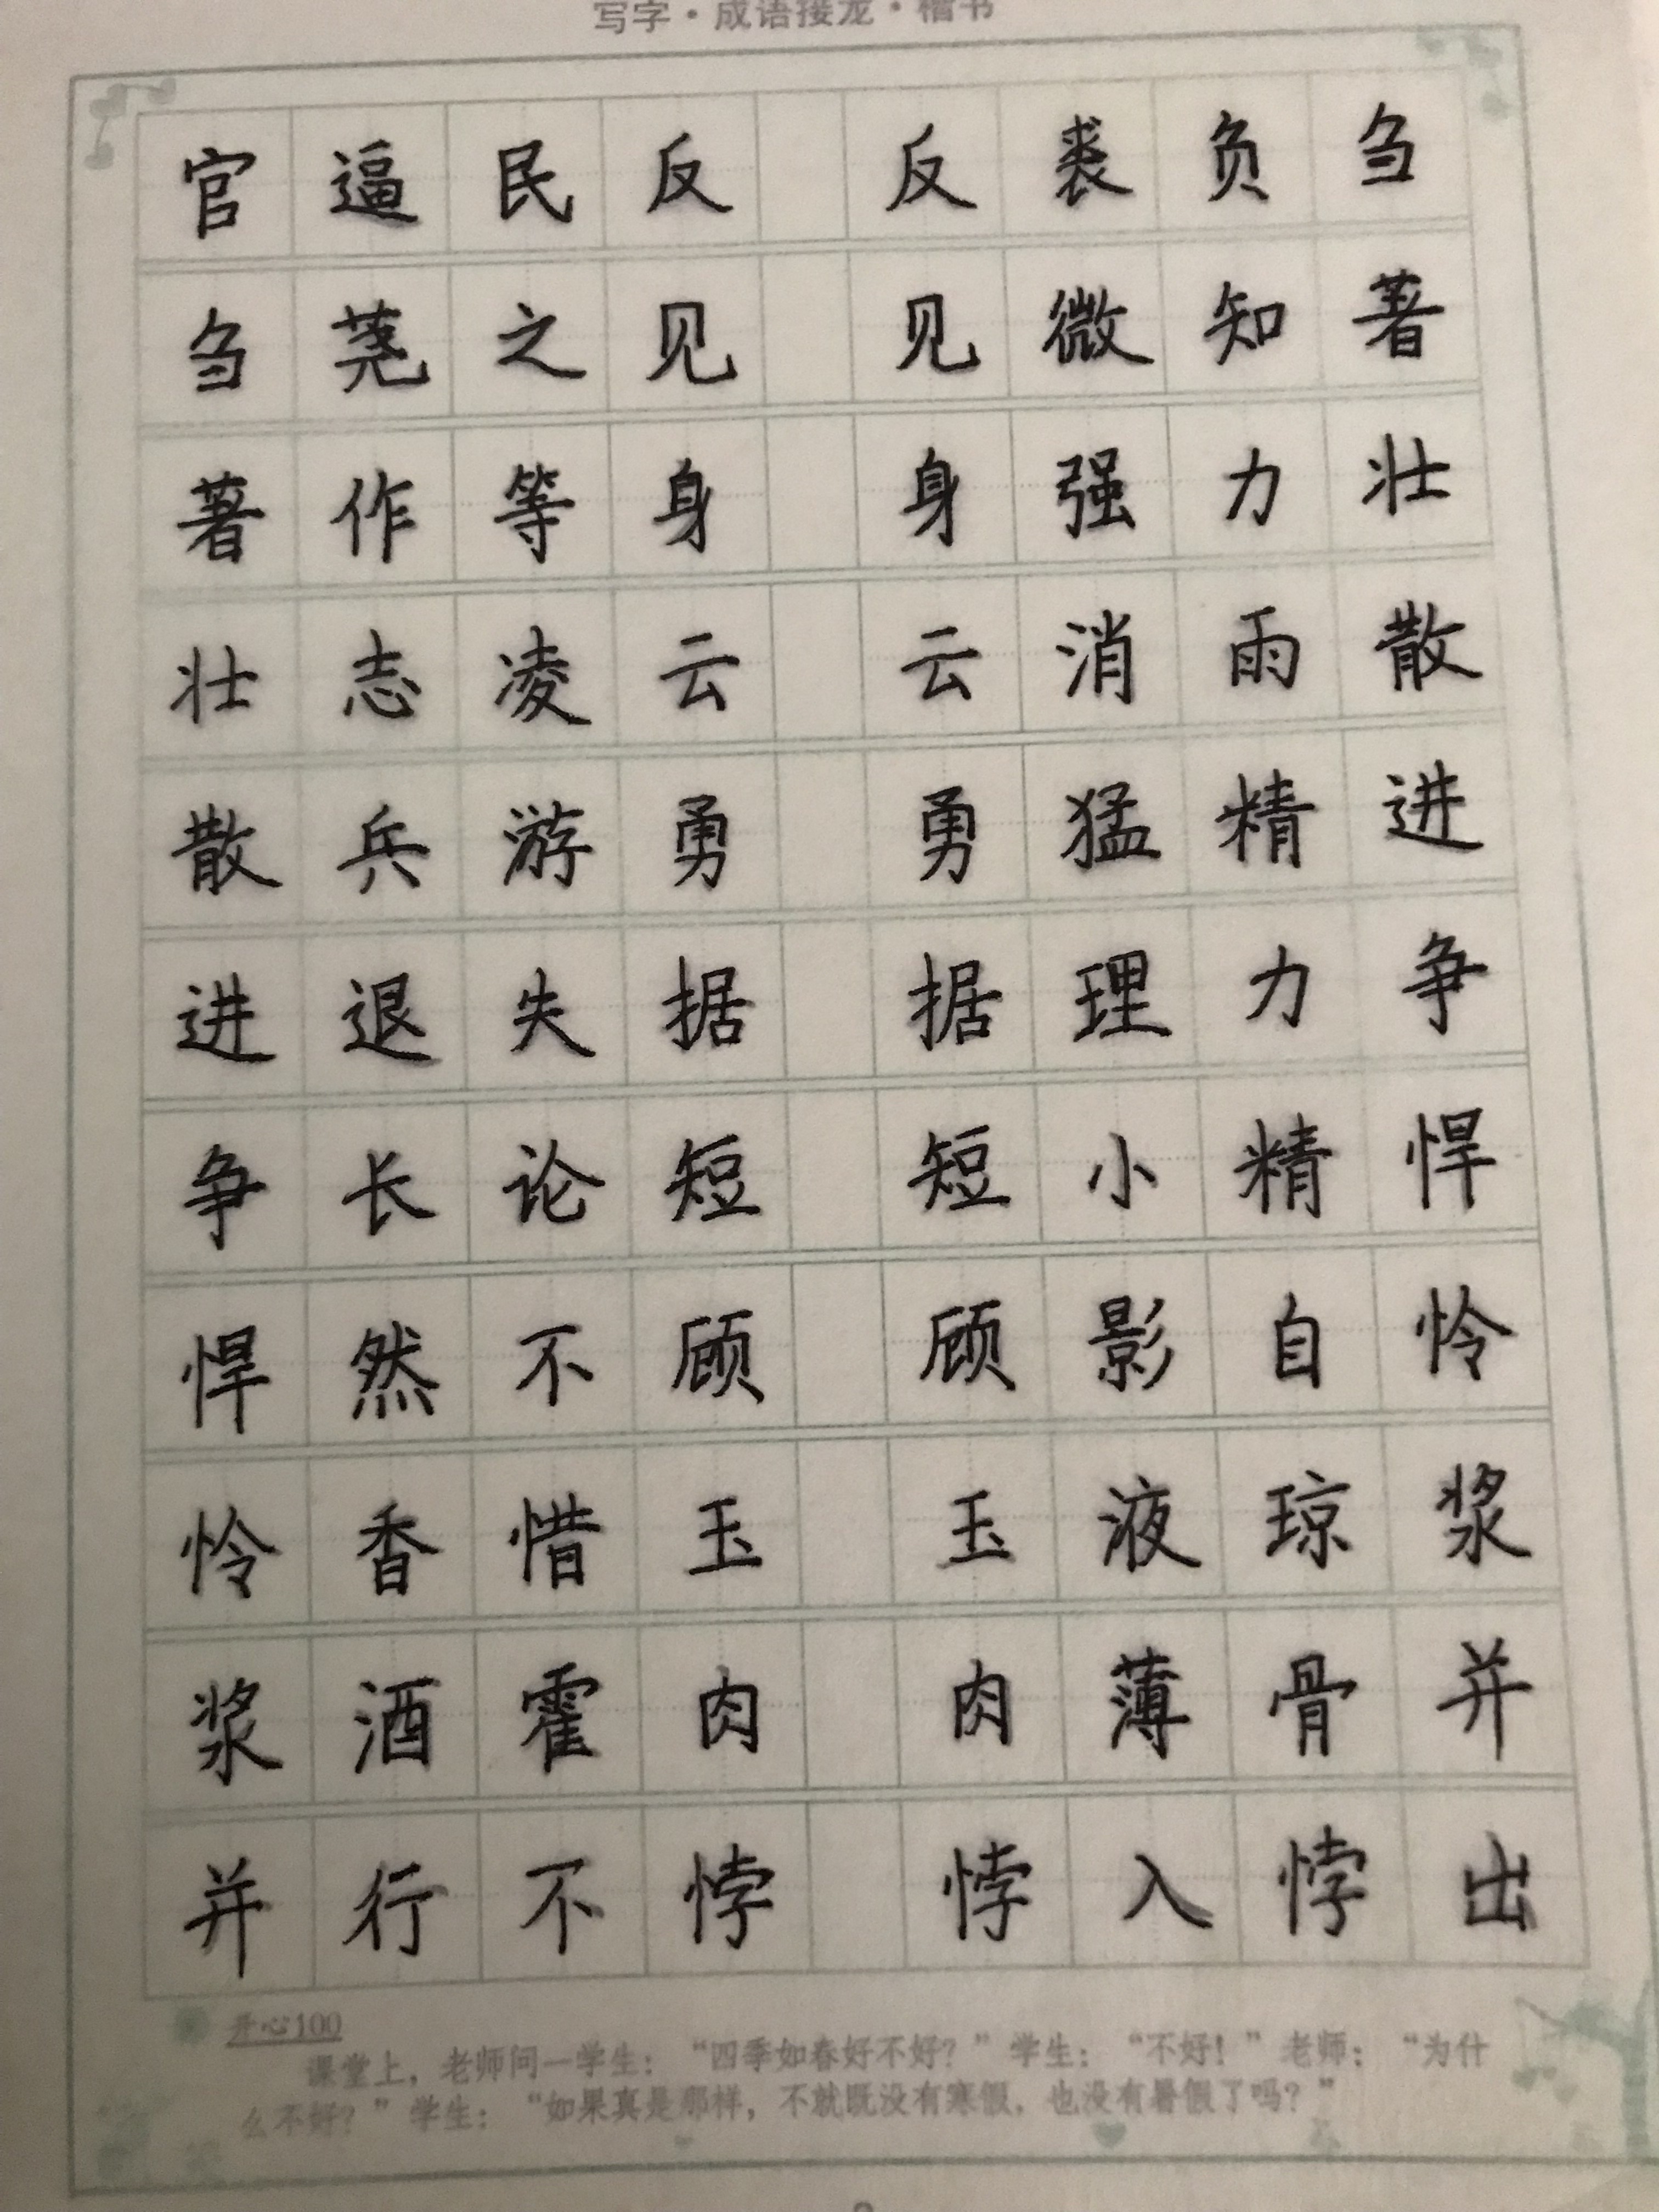 写字·成语接龙·楷书
官逼民反 反裘负刍
刍荛之见 见微知著
著作等身 身强力壮
壮志凌云 云消雨散
散兵游勇 勇猛精进
进退失据 据理力争
争长论短 短小精悍
悍然不顾 顾影自怜
怜香惜玉 玉液琼浆
浆酒霍肉 肉薄骨并
并行不悖 悖入悖出
开心100
课堂上，老师问一学生：“四季如春好不好？”学生：“不好！”老师：“为什
么不好？”学生：“如果真是那样，不就既没有寒假，也没有暑假了吗？”